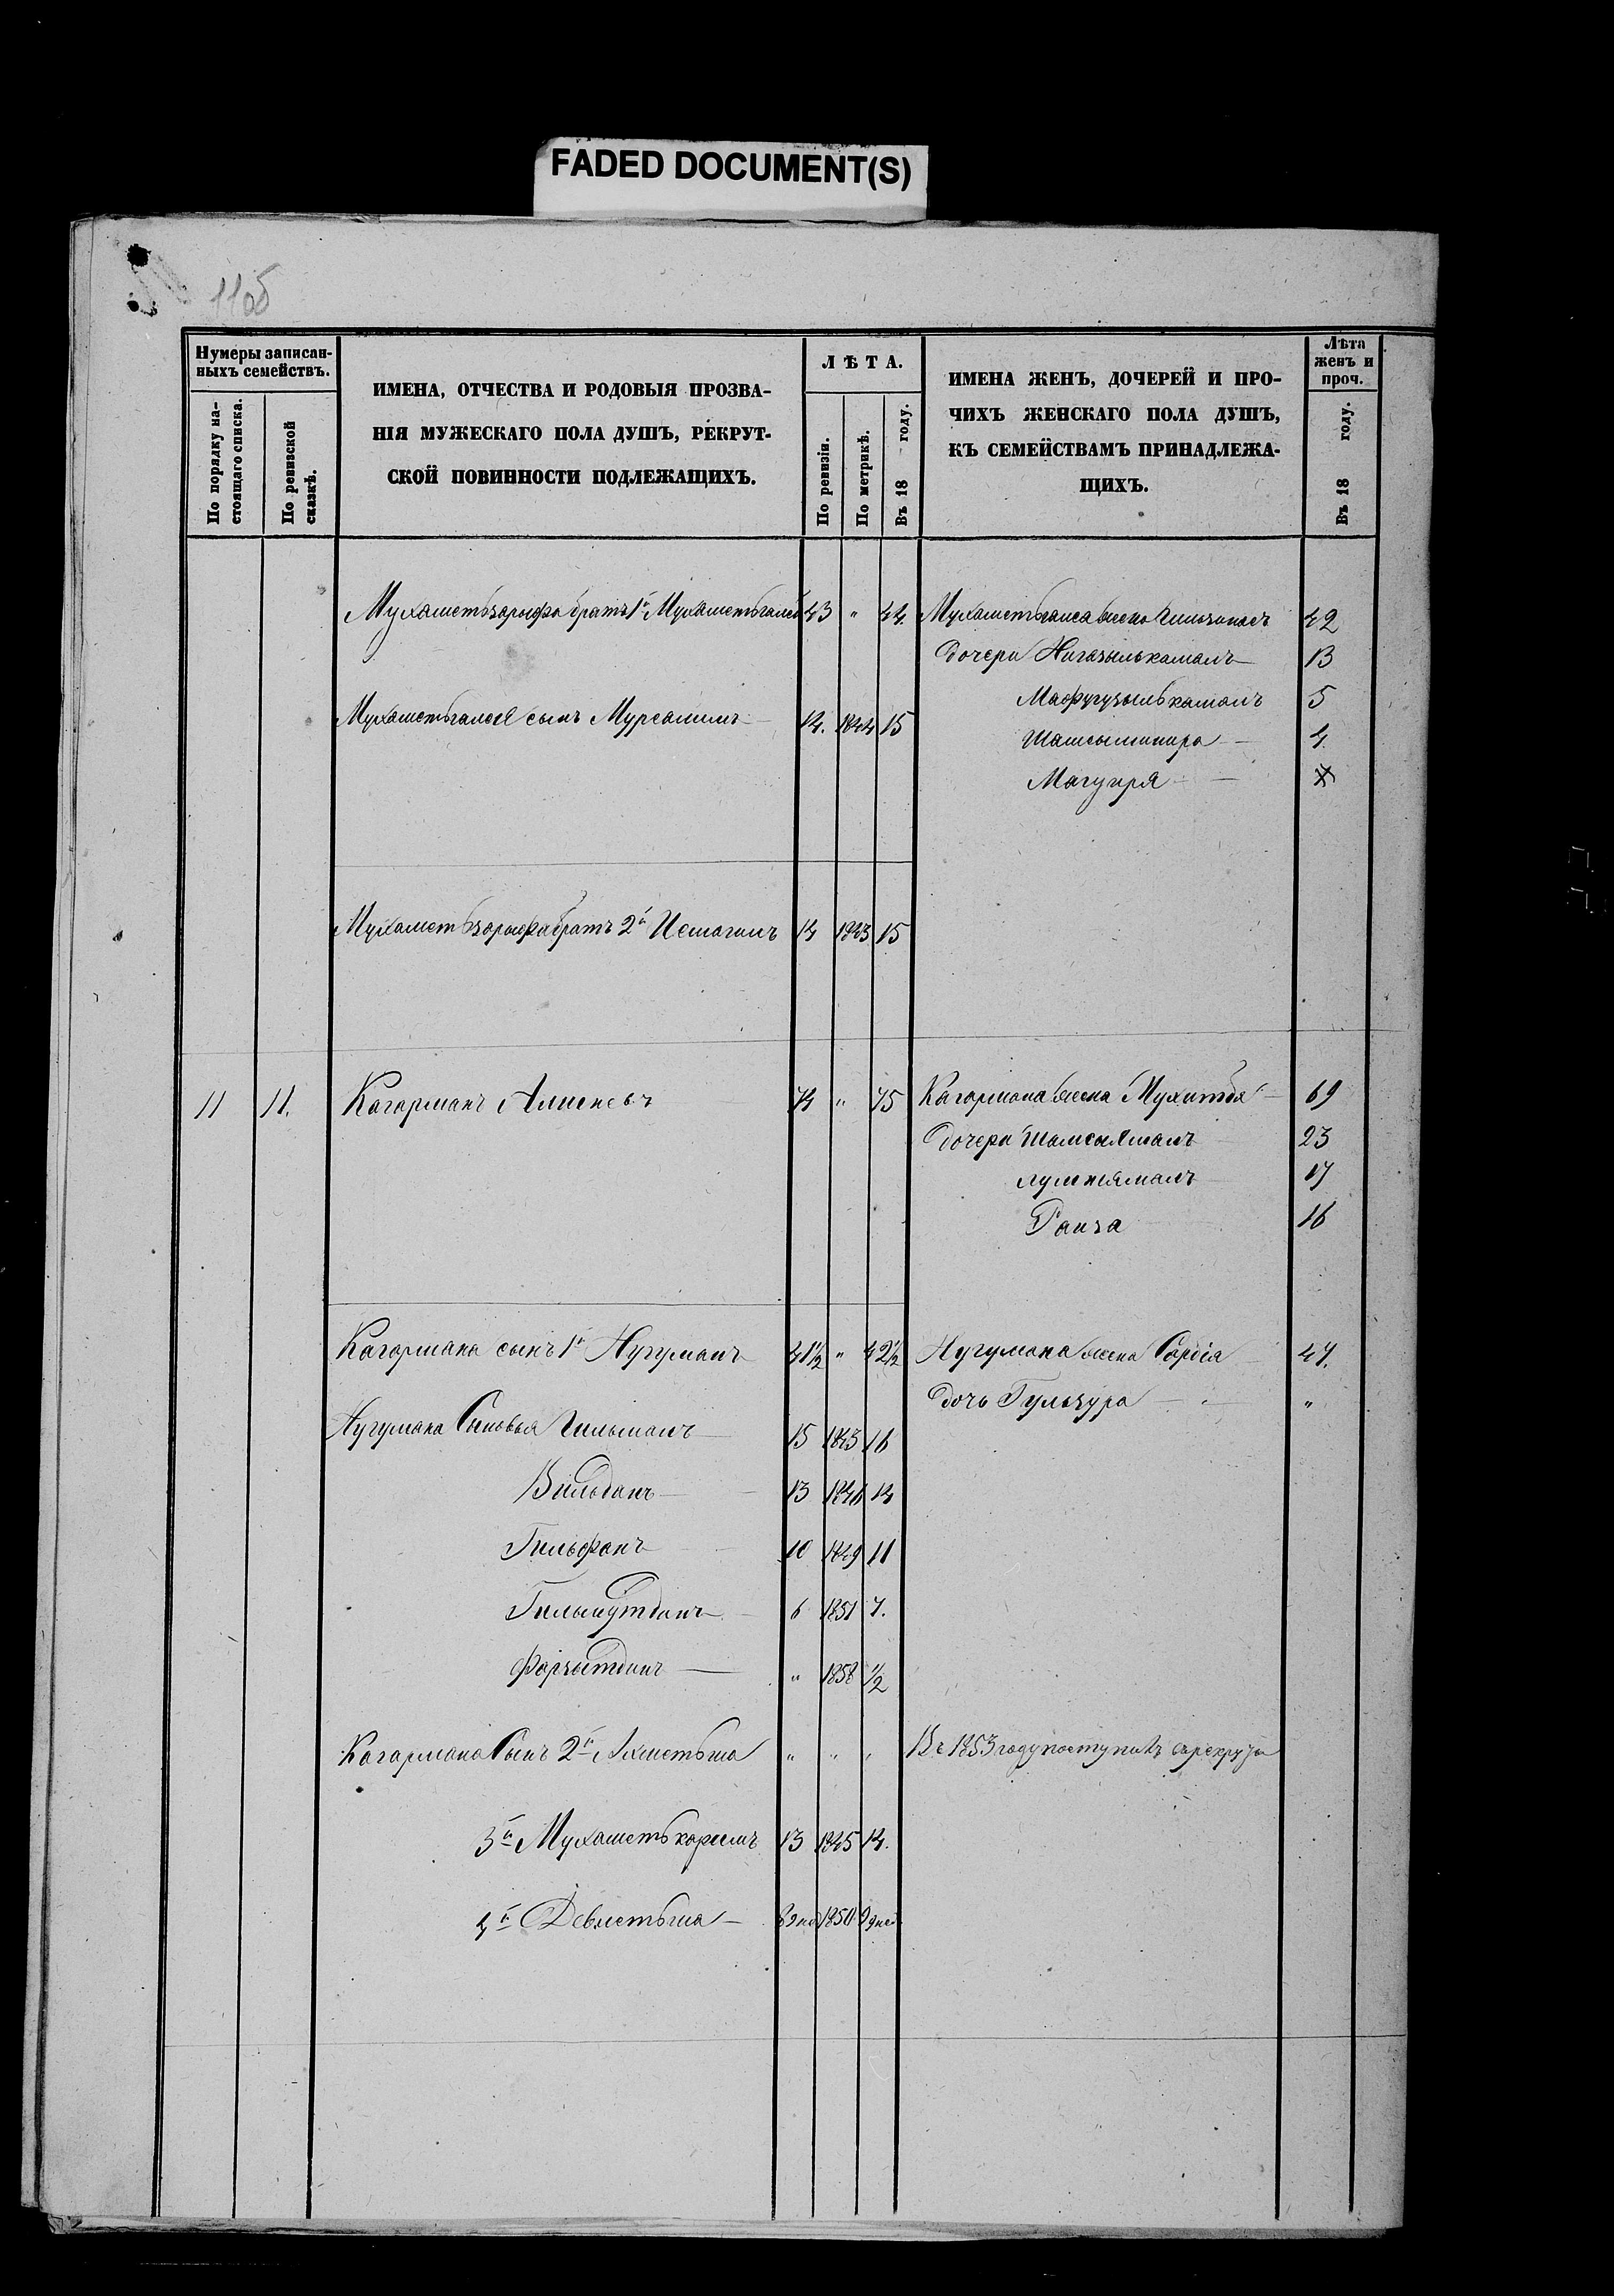 FADED DOCUMENT(S)
11об
Нумеры записан-
ныхъ семействъ.
По порядку на-
стоящаго списка.
По ревизской
сказкѣ.
ИМЕНА, ОТЧЕСТВА И РОДОВЫЯ ПРОЗВА-
НІЯ МУЖЕСКАГО ПОЛА ДУШЪ, РЕКРУТ-
СКОЙ ПОВИННОСТИ ПОДЛЕЖАЩИХЪ.
ЛѢТА.
По ревизіи.
По метрикѣ.
Въ 18 году.
ИМЕНА ЖЕНЪ, ДОЧЕРЕЙ И ПРО-
ЧИХЪ ЖЕНСКАГО ПОЛА ДУШЪ,
КЪ СЕМЕЙСТВАМЪ ПРИНАДЛЕЖА-
ЩИХЪ.
Лѣта
женъ и
проч.
Въ 18 году.
Мухаметьзарифа братъ 1й Мухаметьгалей 43 " 44. жена 42
дочери 13
5
Мухаметьгалея сынъ Мурсалимъ 14. 1844 15
4
Магупря
Мухаметьзарифа братъ 2й Исмагилъ 14 1843 15
11 11. Кагарманъ Алкеевъ 74 " 75 Кагармана жена 69
дочери Шамсиямалъ 23
17
Раиза 16
Кагармана сынъ 1й Нугуманъ 41½ " 42½ Нугумана жена Сарбія 47.
дочь Гульзура "
Нугумана Сыновья Гильманъ 15 1843 16
Вильданъ 13 1846 14
Гильфанъ 10 1849 11
Гильмутдинъ 6 1851 7.
Фарзытдинъ " 1858 ½
Кагармана Сынъ 2й Ахметьша " " " Въ 1853 году поступилъ въ рекруты
3й Мухаметькаримъ 13 1845 14.
4й Девлетьша